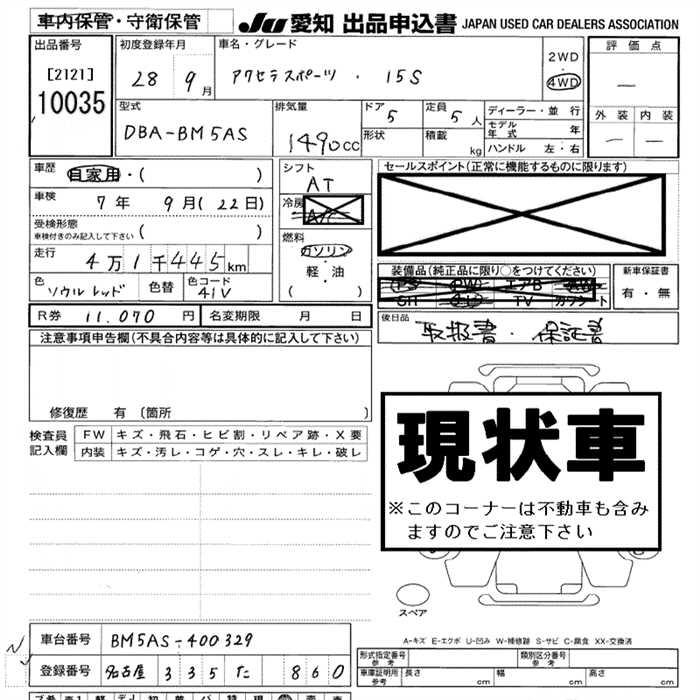 車内保管・守衛保管 JU 愛知 出品申込書 JAPAN USED CAR DEALERS ASSOCIATION
出品番号 初度登録年月 車名・グレード 評価点
[2121] 28 9月 アクセラスポーツ ・ 15S 2WD ・ 4WD —
10035 型式 排気量 ドア 5 定員 5人 ディーラー・並行 外装 内装
DBA-BM5AS 1490cc 形状 積載 kg モデル年式 年 — —
ハンドル 左・右
車歴 自家用・( ) シフト AT セールスポイント(正常に機能するものに限ります)
車検 7年 9月(22日) 冷房 A/C
受検形態 車検付きのみ記入して下さい ( ) 燃料 ガソリン
走行 4万1千445km 軽・油
色 ソウルレッド 色替 色コード 41V ( ) 装備品(純正品に限り○をつけてください) 新車保証書
PS PW エアB AW 有・無
SR ナビ TV カワシート
R券 11,070円 名変期限 月 日 後日品
注意事項申告欄(不具合内容等は具体的に記入して下さい) 取扱書・保証書
修復歴 有 〔箇所 〕
検査員 記入欄 FW キズ・飛石・ヒビ割・リペア跡・X要
内装 キズ・汚レ・コゲ・穴・スレ・キレ・破レ
現状車
※このコーナーは不動車も含み
ますのでご注意下さい
スペア
A-キズ E-エクボ U-凹み W-補修跡 S-サビ C-腐食 XX-交換済
車台番号 BM5AS-400329
登録番号 名古屋 335 た 860
形式指定番号 参考 類別区分番号 参考
車庫証明用 参考 長さ cm 幅 cm 高さ cm